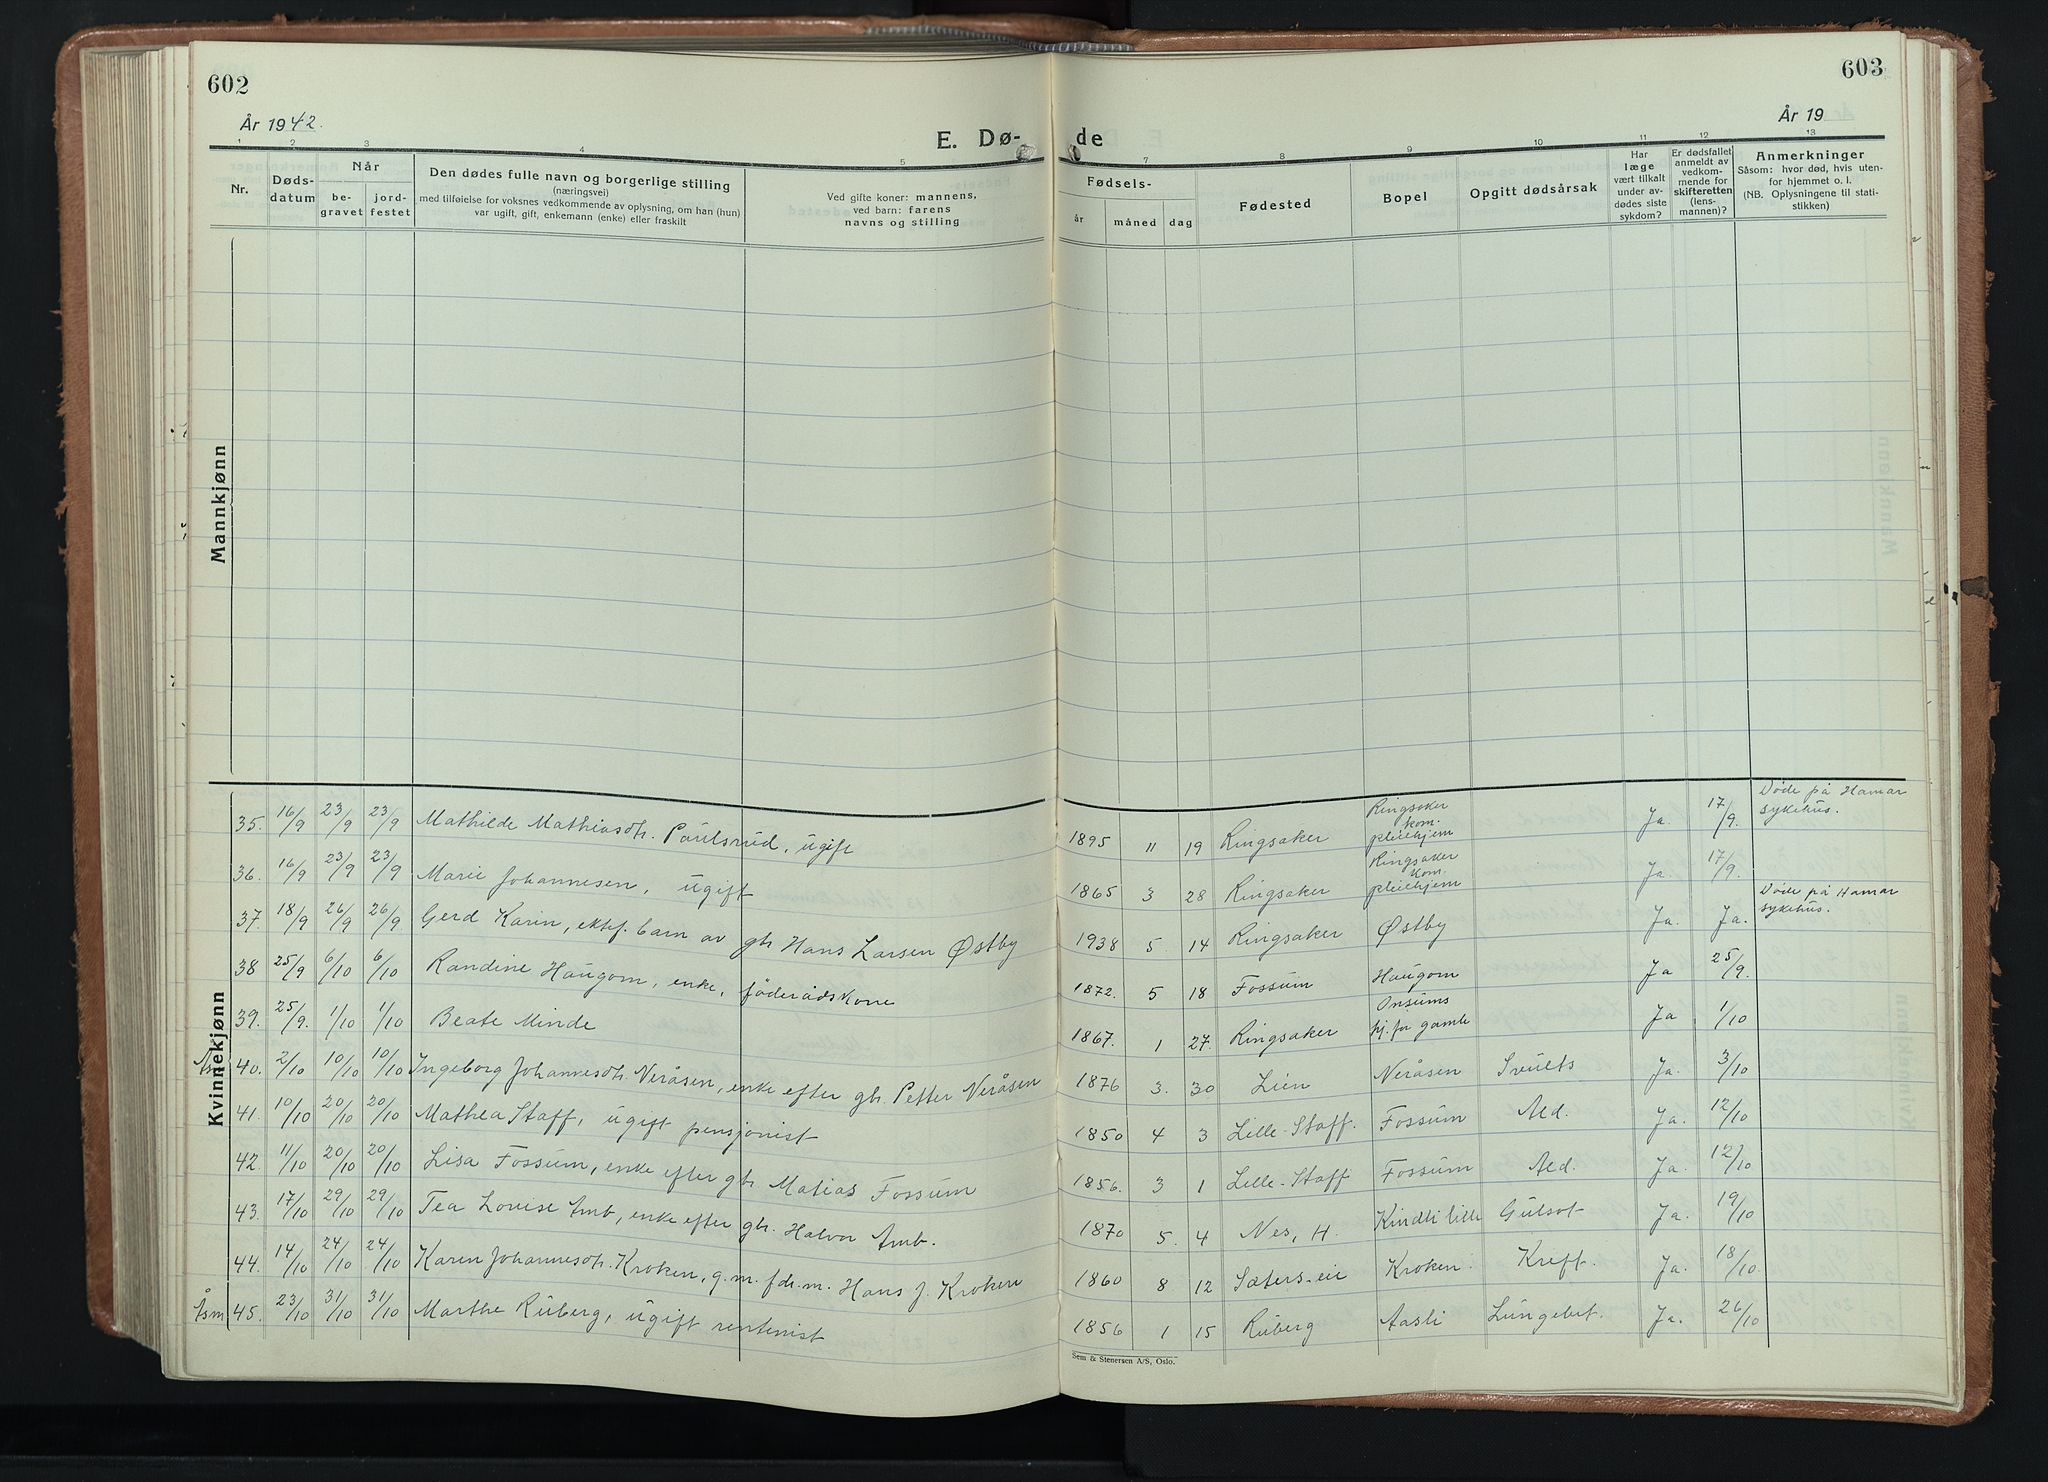 602
603
År 1942.
År 19
E. Dø- de
1 2 3 4 5 7 8 9 10 11 12 13
Nr.
Døds-
datum
Når
be-
gravet
jord-
festet
Den dødes fulle navn og borgerlige stilling
(næringsvei)
med tilføielse for voksnes vedkommende av oplysning, om han (hun)
var ugift, gift, enkemann (enke) eller fraskilt
Ved gifte koner: mannens,
ved barn: farens
navns og stilling
Fødsels-
år
måned
dag
Fødested
Bopel
Opgitt dødsårsak
Har
læge
vært tilkalt
under av-
dødes siste
sykdom?
Er dødsfallet
anmeldt av
vedkom-
mende for
skifteretten
(lens-
mannen)?
Anmerkninger
Såsom: hvor død, hvis uten-
for hjemmet o. l.
(NB. Oplysningene til stati-
stikken)
Mannkjønn
Kvinnekjønn
35. 16/9 23/9 23/9 Mathilde Mathiasdtr. Paulsrud, ugift 1895 11 19 Ringsaker Ringsaker kom. pleiehjem Ja. 17/9. Døde på Hamar sykehus.
36. 16/9 23/9 23/9 Marie Johannesen, ugift 1865 3 28 Ringsaker Ringsaker kom. pleiehjem Ja. 17/9.
37. 18/9 26/9 26/9 Gerd Karin, ektef. barn av gbr. Hans Larsen Østby 1938 5. 14 Ringsaker Østby Ja. Ja. Døde på Hamar sykehus.
38 25/9 6/10 6/10 Randine Haugom, enke, føderådskone 1872. 5 18 Fossum Haugom Ja 25/9.
39. 25/9. 1/10 1/10 Beate Minde 1867. 1 27. Ringsaker Onsums hj. for gamle Ja 1/10
40. 2/10 10/10 10/10 Ingeborg Johannesdtr. Neråsen, enke efter gbr. Petter Neråsen 1876 3. 30 Lien Neråsen Svults Ja. 3/10
41. 10/10 20/10 20/10 Mathea Staff, ugift pensjonist 1850 4 3 Lille-Staff. Fossum Ald. Ja. 12/10
42. 11/10 20/10 20/10 Lisa Fossum, enke efter gbr. Matias Fossum 1856. 3 1 Lille-Staff Fossum Ald. Ja. 12/10
43. 17/10 29/10 29/10 Tea Lovise Amb, enke efter gbr. Halvor Amb. 1870 5. 4 Nes, H. Kindli lille Gulsot Ja. 19/10
44. 14/10 24/10 24/10 Karen Johannesdtr. Kroken, g.m. fdr.m. Hans J. Kroken 1860 8 12 Sæters-eie Kroken Kreft. Ja. 18/10.
Åsm 45. 23/10 31/10 31/10 Marthe Ruberg, ugift rentenist 1856 1 15 Ruberg Aasli Lungebet. Ja. 26/10
Sem & Stenersen A/S, Oslo.